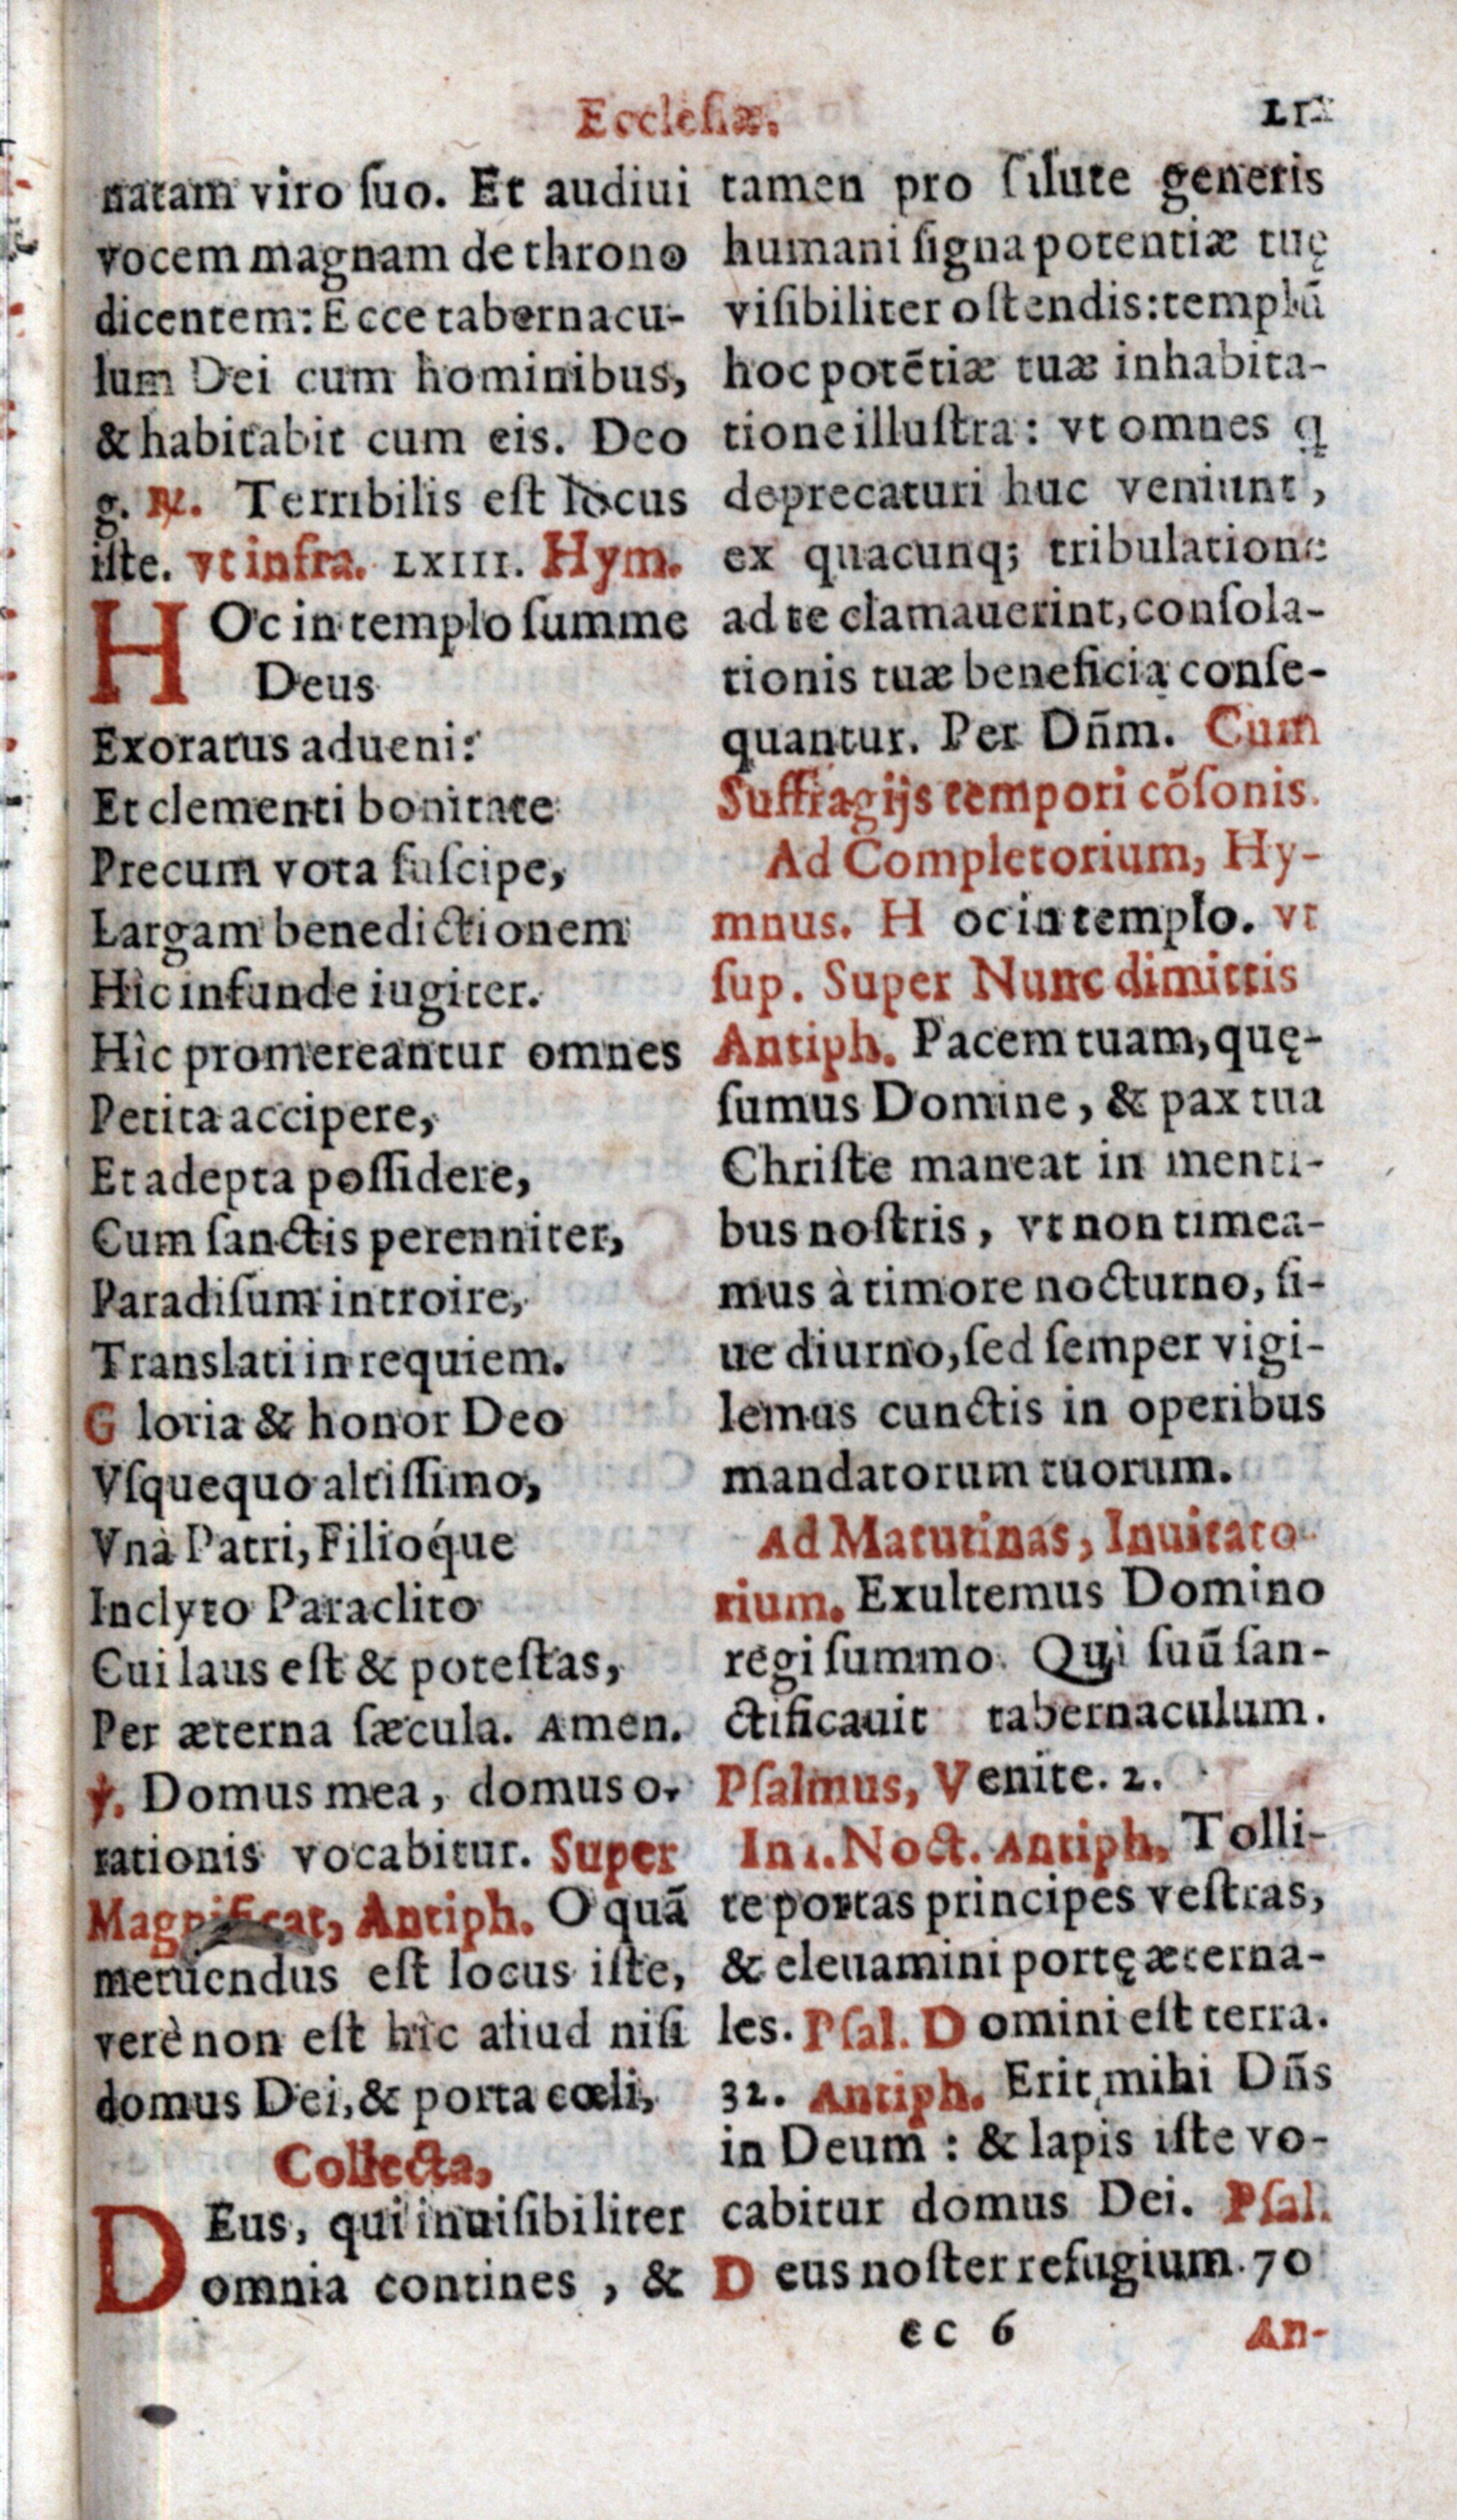 Ecclesiæ.
natam viro ſuo. Et audiui
vocem magnam de throno
dicentem: Ecce tabernacu-
lum Dei cum hominibus,
& habitabit cum eis. Deo
g. ℟. Terribilis eſt locus
iſte. vt infra. LXIII. Hym.
HOc in templo ſumme
Deus
Exoratus adueni:
Et clementi bonitate
Precum vota ſuſcipe,
Largam benedictionem
Hîc infunde iugiter.
Hîc promereantur omnes
Petita accipere,
Et adepta poſſidere,
Cum ſanctis perenniter,
Paradiſum introire,
Translati in requiem.
Gloria & honor Deo
Vſquequo altiſſimo,
Vnà Patri, Filioq́ue
Inclyto Paraclito
Cui laus eſt & poteſtas,
Per æterna ſæcula. Amen.
℣. Domus mea, domus o-
rationis vocabitur. Super
Magnificat, Antiph. O quã
metuendus eſt locus iſte,
verè non eſt hîc aliud niſi
domus Dei, & porta cœli,
Collecta,
DEus, qui inuiſibiliter
omnia contines, &
tamen pro ſilute generis
humani ſigna potentiæ tuę
viſibiliter oſtendis: templũ
hoc potẽtiæ tuæ inhabita-
tione illuſtra: vt omnes q
deprecaturi huc veniunt,
ex quacunq; tribulatione
ad te clamauerint, conſola-
tionis tuæ beneficia conſe-
quantur. Per Dñm. Cum
Suffragijs tempori cõſonis.
Ad Completorium, Hy-
mnus. Hoc in templo. vt
ſup. Super Nunc dimittis
Antiph. Pacem tuam, quę-
ſumus Domine, & pax tua
Chriſte maneat in menti-
bus noſtris, vt non timea-
mus à timore nocturno, ſi-
ue diurno, ſed ſemper vigi-
lemus cunctis in operibus
mandatorum tuorum.
Ad Matutinas, Inuitato
rium. Exultemus Domino
regi ſummo. Qui ſuũ ſan-
ctificauit tabernaculum.
Pſalmus, Venite. 2.
In 1. Noct. Antiph. Tolli-
te portas principes veſtras,
& eleuamini portę æterna-
les. Pſal. Domini eſt terra.
32. Antiph. Erit mihi Dñs
in Deum: & lapis iſte vo-
cabitur domus Dei. Pſal.
Deus noſter refugium. 70
ec 6 An-